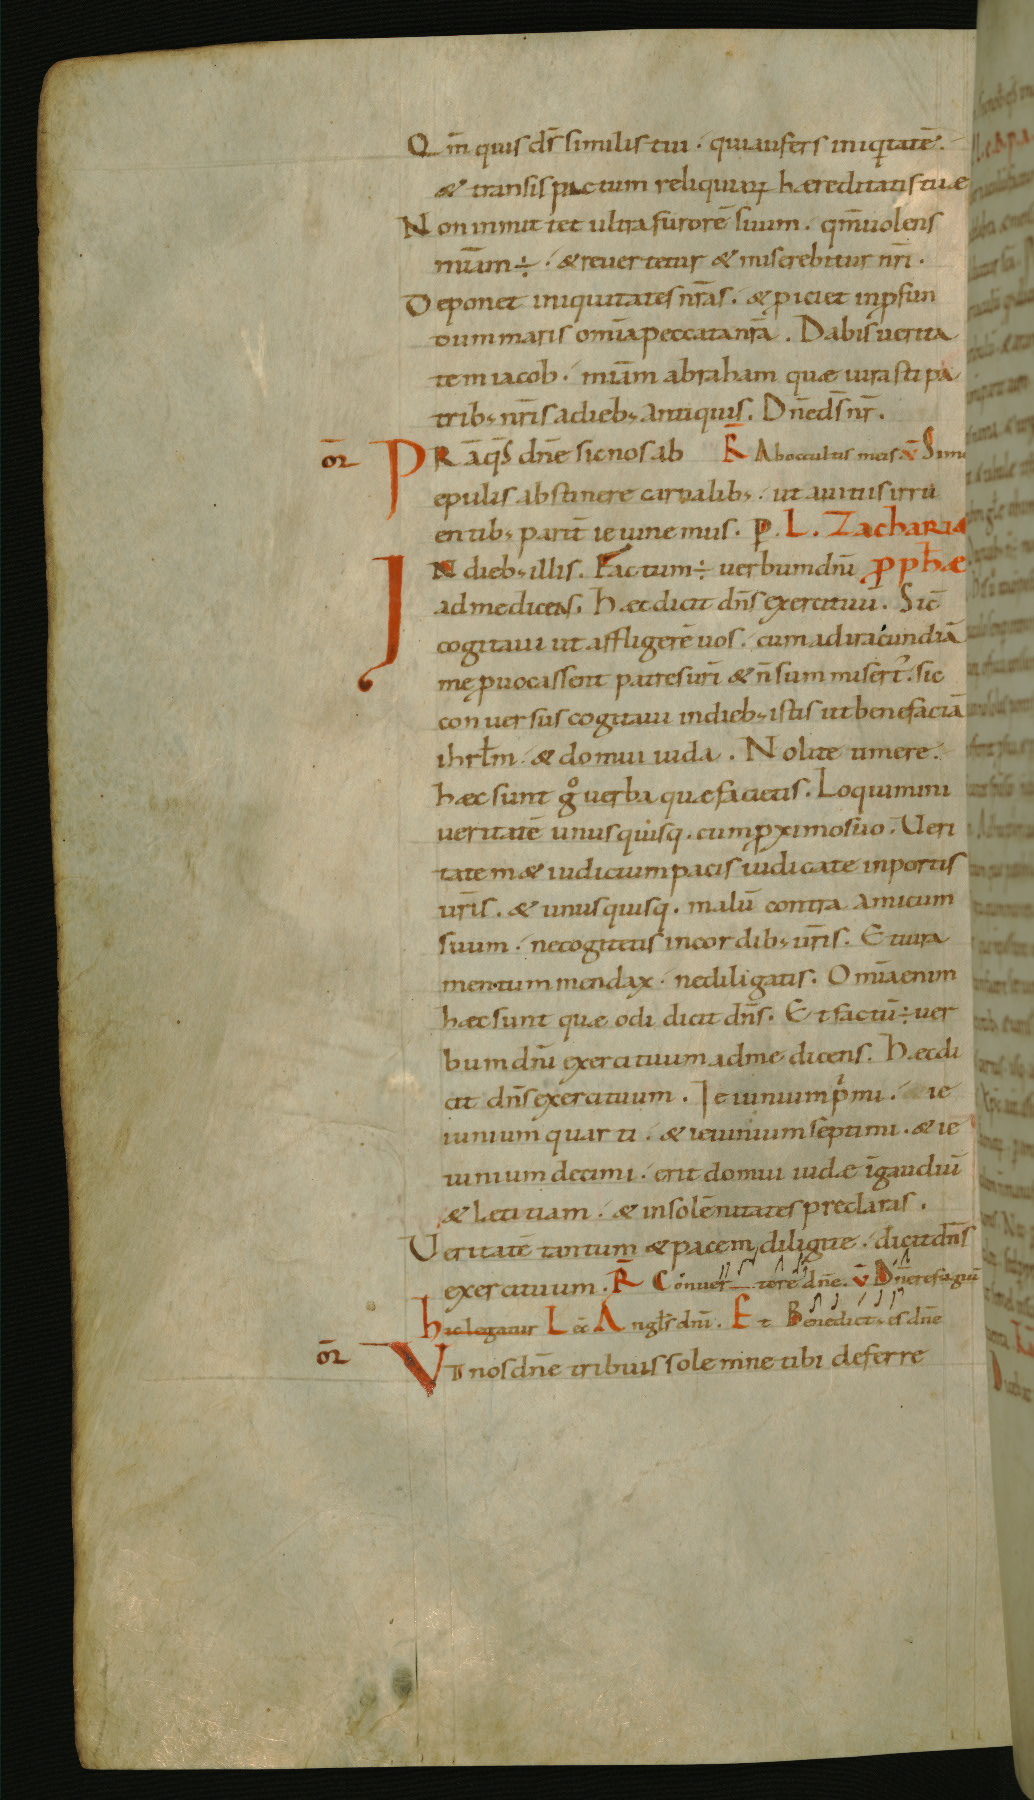 Qm̄ quis dr̄ similis tui · qui aufers iniq̇tatē ·
& transis pactum reliquiaꝝ hæreditatis tuæ
Non inmittet ultra furorē suum · qm̄ uolens
miām ÷ · & reuertetur & miserebitur nr̄i ·
Deponet iniquitates nr̄as · & ꝓiciet in ꝓfun
dum maris omīa peccata nr̄a . Dabis uerita
tem iacob · miām abraham quæ iurasti pa
trib; nr̄is adieb; antiquis . Dn̄e ds̄ nr̄ .
or̄ PRā qs̄ dn̄e sic nos ab R̄ Ab occultis meis v̄ Si m
epulis abstinere carnalib; · ut a uitiis irru
entib; parit̄ ieiunemus . ꝑ . L . Zachariæ
IN dieb; illis . Factum ÷ uerbum dn̄i ꝓphæ
ad me dicens . Hæc dicit dn̄s exercituū . Sic̄
cogitaui ut affligerē uos · cum ad iracundiā
me ꝓuocassent patres ur̄i & n̄ sum misert᷒ · sic
conuersus cogitaui in dieb; istis ut benefaciā
ihrl̄m · & domui iuda . Nolite timere ·
hæc sunt gͦ uerba quæ facietis . Loquimini
ueritatē unusquisq · cum ꝓximo suo . Ueri
tatem & iudicium pacis iudicate in portis
ur̄is . & unusquisq · malū contra amicum
suum · ne cogitetis in cordib; ur̄is . Et iura
mentum mendax · ne diligatis . Omīa enim
hæc sunt quæ odi dicit dn̄s . Et factū ÷ uer
bum dn̄i exercituum ad me dicens . Hæc di
cit dn̄s exercituum . Ieiunium pⁱmi · ie
iunium quarti · & ieiunium septimi · & ie
iunium decimi · erit domui iudæ ī gaudiū
& lætitiam · & in solēnitates preclaras .
Ueritatē tantum & pacem diligite · dicit dn̄s
exercituum . R̄ Conuertere dn̄e . v̄ Dn̄e refugiū
hic legatur Lec̄ Angl̄s dn̄i . Et Benedict; es dn̄e
or̄ VT nos dn̄e tribuis solemne tibi deferre